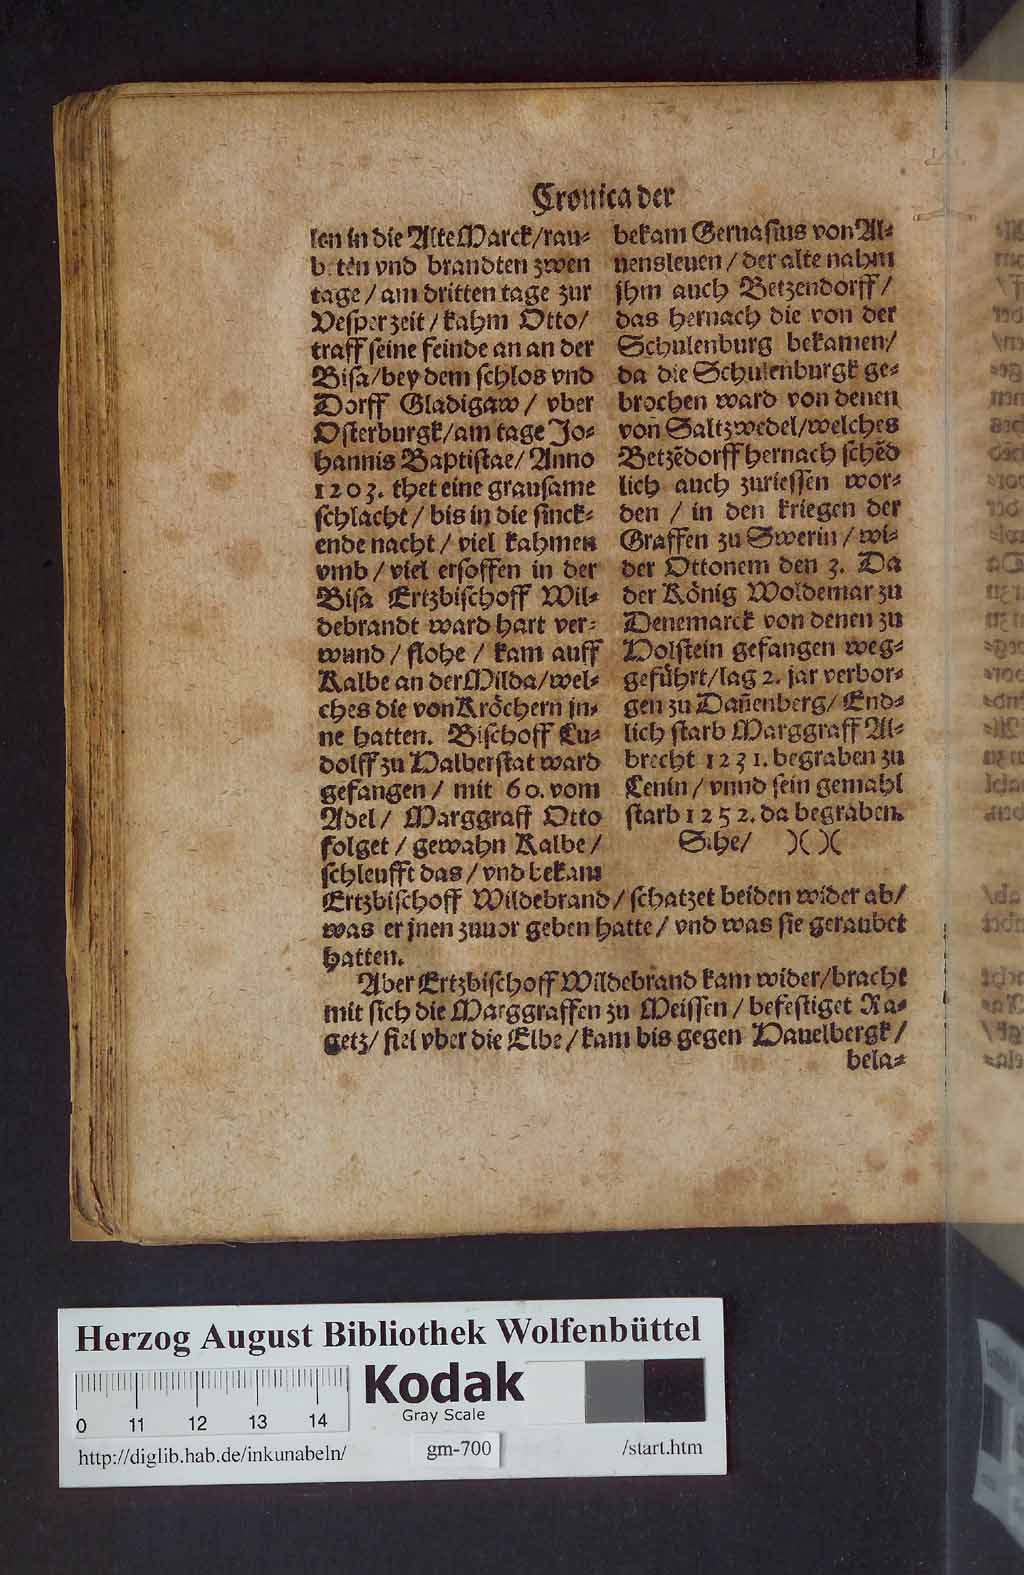 Cronica der
len in die Alte Marck/rau-
beten vnd brandten zwen
tage/ am dritten tage zur
Vesper zeit/ kahm Otto/
traff seine feinde an an der
Bisa/bey dem schlos vnd
Dorff Gladigaw/ vber
Osterburgk/am tage Jo-
hannis Baptistae/ Anno
1203. thet eine grausame
schlacht/ bis in die sinck-
ende nacht/ viel kahmen
vmb/ viel ersoffen in der
Bisa Ertzbischoff Wil-
debrandt ward hart ver-
wund/ flohe/ kam auff
Kalbe an der Milda/wel-
ches die von Kröchern in-
ne hatten. Bischoff Lu-
dolff zu Halberstat ward
gefangen/ mit 60. vom
Adel/ Marggraff Otto
folget/ gewahn Kalbe/
schleufft das/ vnd bekam
bekam Geruasius von Al-
uensleuen/ der alte nahm
jhm auch Betzendorff/
das hernach die von der
Schulenburg bekamen/
da die Schulenburgk ge-
brochen ward von denen
von Saltzwedel/welches
Betzēdorff hernach schēd
lich auch zuriessen wor-
den/ in den kriegen der
Graffen zu Swerin/ wi-
der Ottonem den 3. Da
der König Woldemar zu
Denemarck von denen zu
Holstein gefangen weg-
geführt/lag 2. jar verbor-
gen zu Dañenberg/ End-
lich starb Marggraff Al-
brecht 1231. begraben zu
Lenin/ vnnd sein gemahl
starb 1252. da begraben.
Sihe/ )( )(
Ertzbischoff Wildebrand/ schatzet beiden wider ab/
was er jnen zuuor geben hatte/ vnd was sie geraubet
hatten.
Aber Ertzbischoff Wildebrand kam wider/bracht
mit sich die Marggraffen zu Meissen/ befestiget Ra-
getz/ fiel vber die Elbe/ kam bis gegen Hauelbergk/
bela-
Herzog August Bibliothek Wolfenbüttel
Kodak
Gray Scale
0 11 12 13 14
http://diglib.hab.de/inkunabeln/ gm-700 /start.htm